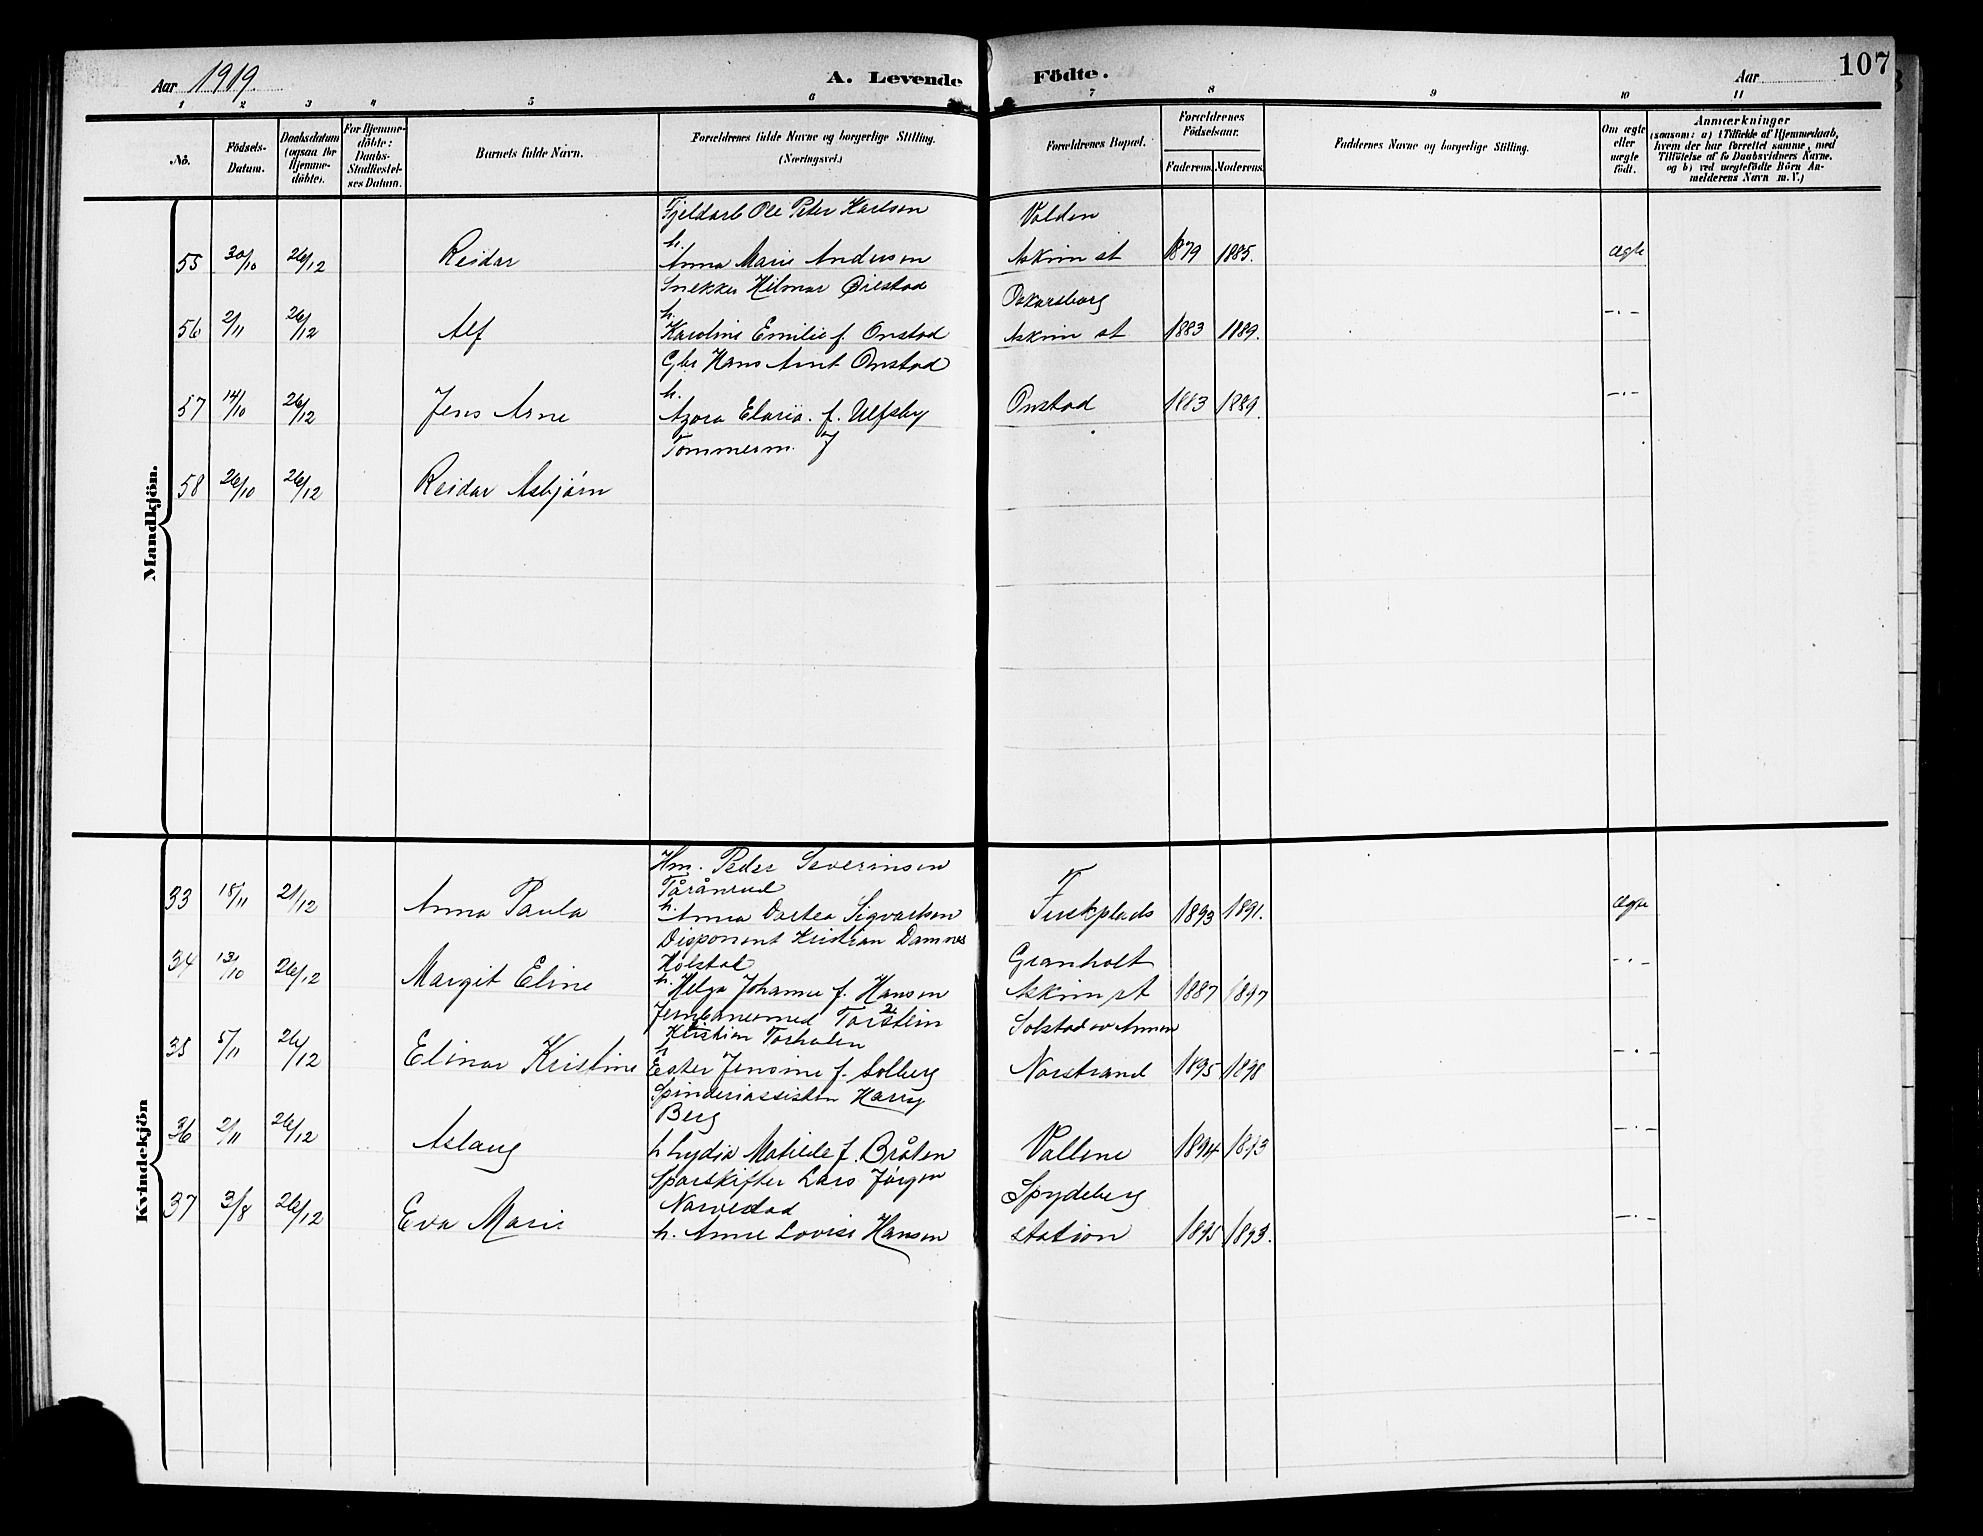 Aar 1919. A. Levende Födte. Aar 107
1 2 3 4 5 6 7 8 9 10 11
No. Födsels-Datum. Daabsdatum (ogsaa for Hjemme-döbte). For Hjemme-döbte: Daabs-Stadfæstel-ses Datum. Barnets fulde Navn. Forældrenes fulde Navne og borgerlige Stilling. (Næringsvei.) Forældrenes Bopæl. Forældrenes Födselsaar. Faderens. Moderens. Faddernes Navne og borgerlige Stilling. Om ægte eller uægte födt. Anmærkninger (saasom: a) i Tilfælde af Hjemmedaab, hvem der har forrettet samme, med Tilföielse af to Daabsvidners Navne, og b) ved uægtefödte Börn An-melderens Navn m. V.)
Mandkjön.
Fjeldarb Ole Peter Karlsen Volden
h.
55 30/10 26/12 Reidar Anna Marie Andersen Askim st 1879 1885. Ægte
Snekker Hilmar Ørestad Oskarsborg
h.
56 2/11 26/12 Alf Karoline Emilie f. Onstad Askim st 1883 1889. -.-
Gbr Hans Arnt Onstad
h.
57 14/10 26/12 Jens Arne Azora Elaria. f. Ulfsby Onstad 1883 1889. -.-
Tømmerm. og
58 26/10 26/12 Reidar Asbjørn
Kvindekjön
Hm. Peder Severinsen
Tårånrud
33 15/11 21/12 Anna Paula h. Anna Dortea Sigvartsen Fuskplads 1893 1891. Ægte
Disponent Kristian Damnes
Holstad Granholt
34 13/10 26/12 Margit Eline h. Helga Johanne f. Hansen Askim st 1887 1897 -.-
Jernbanemed Torstein Solstad
Kristian Torholen
35 5/11 26/12 Elinor Kristine h Ester Jensine f. Solberg Norstrand 1895 1898 -.-
Spinderiassistem Harry
Berg
36 2/11 26/12 Aslaug h Lydia Matilde f. Bråten Vollene 1894 1893 -.-
Sporskifter Lars Jørgen Spydeberg
Narvestad
37 3/8 26/12 Eva Marie h. Anne Lovise Hansen station 1895 1893. -.-